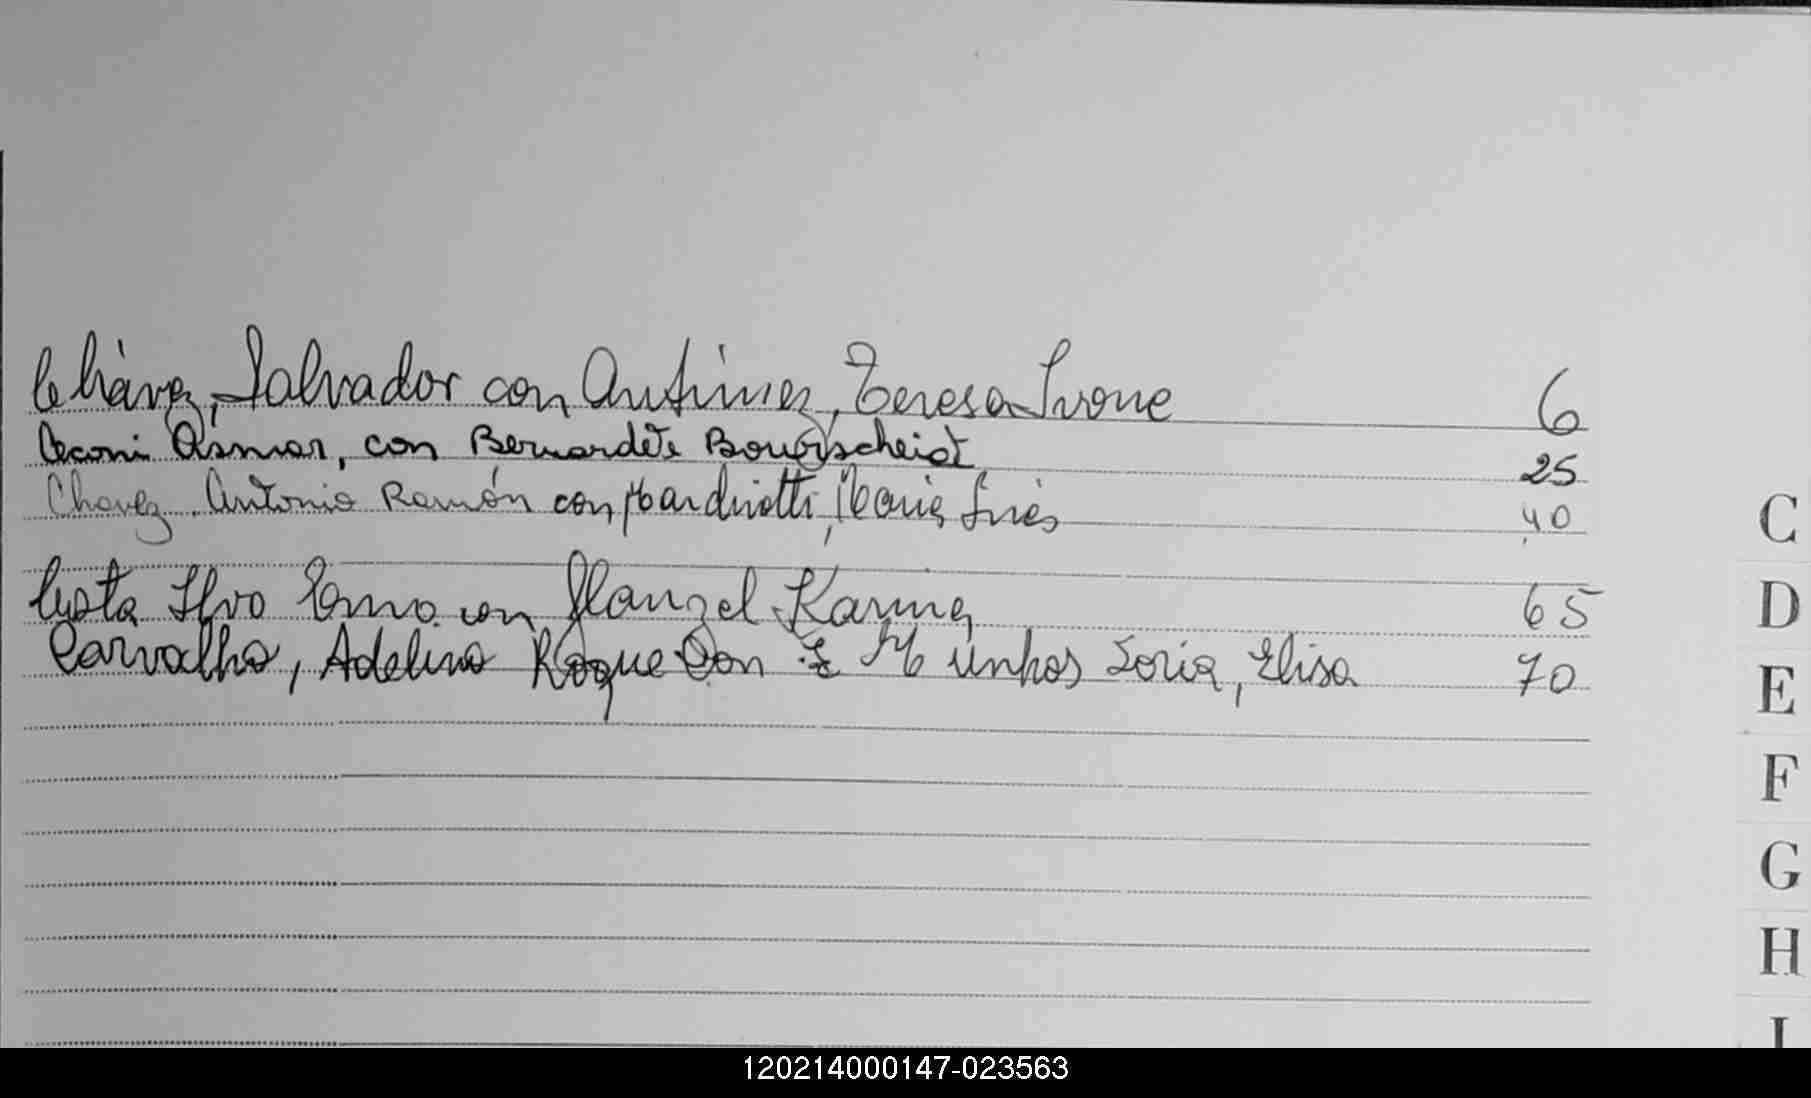 Chávez, Salvador con Antúnez, Teresa Ivone 6
Ceconi Osmar, con Bernardete Bourscheidt 25
Chavez, Antonio Ramón con Mardviotti, María Inés 40
C
Costa Ilvo con Karina 65
D
Carvalho, Adelino Roque Con Munhos Soria, Elisa 70
E
F
G
H
I
120214000147-023563